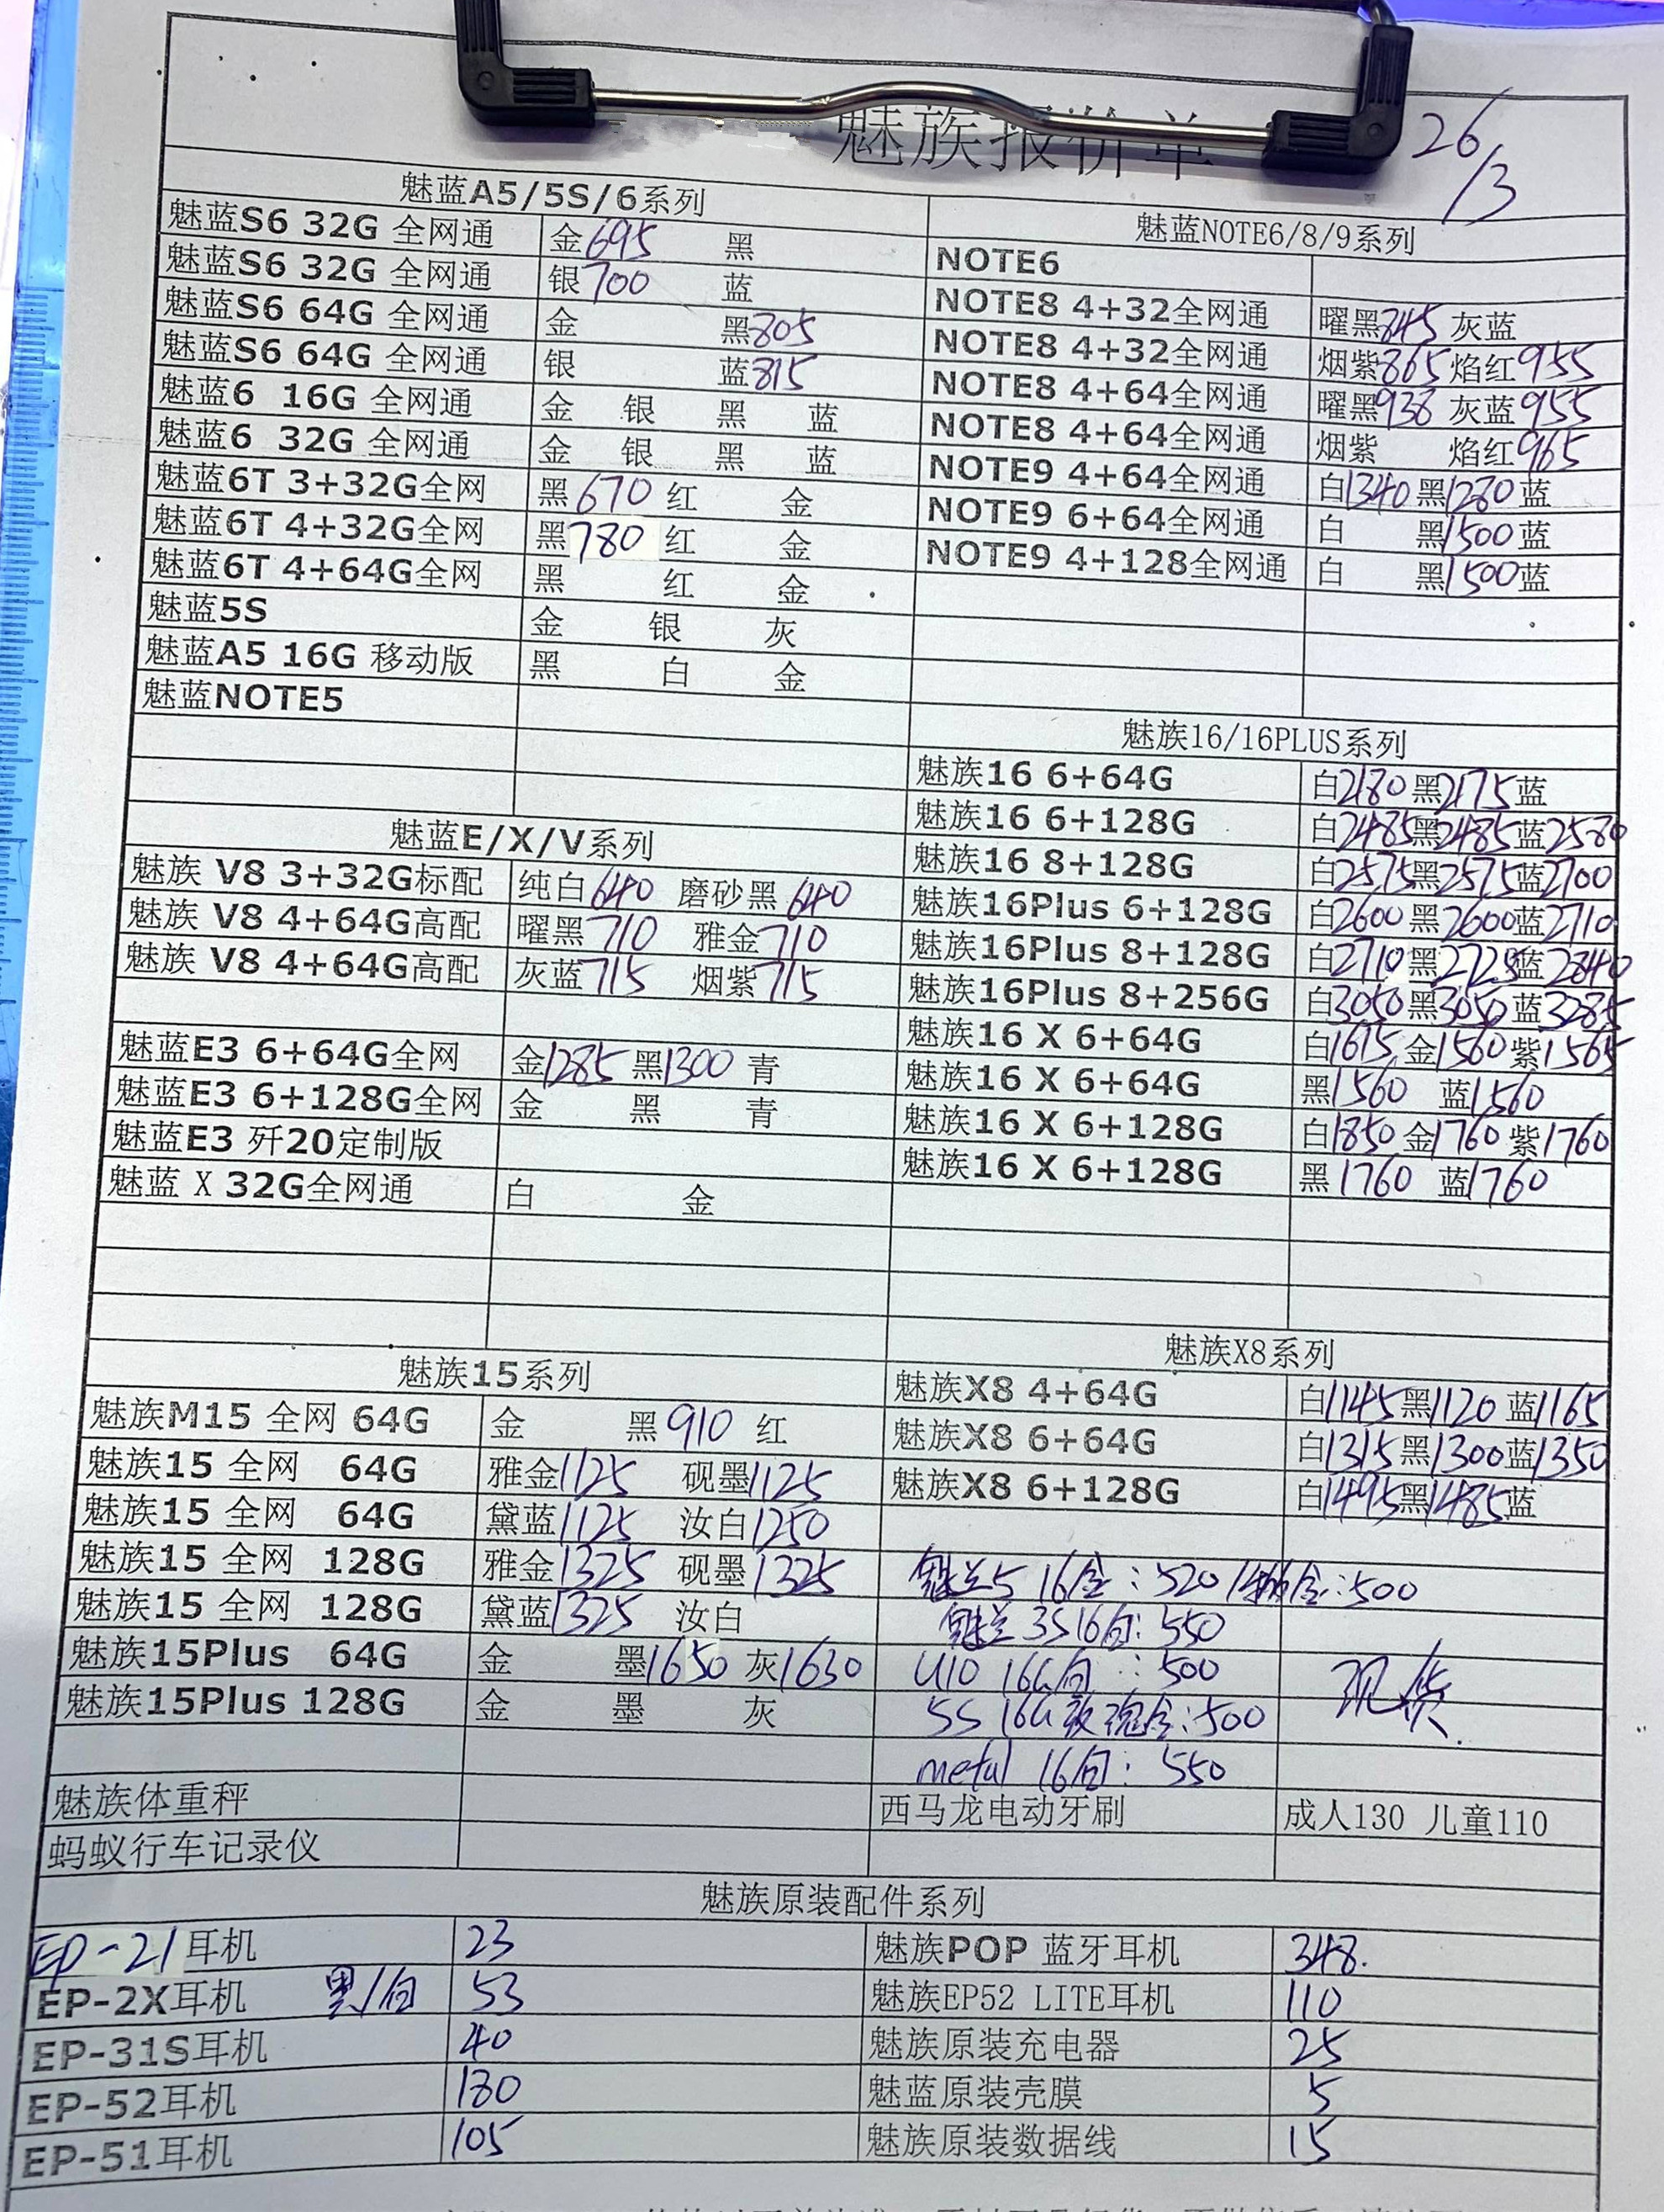 魅族报价单
26/3
魅蓝A5/5S/6系列
魅蓝S6 32G 全网通 金695 黑
魅蓝S6 32G 全网通 银700 蓝
魅蓝S6 64G 全网通 金 黑805
魅蓝S6 64G 全网通 银 蓝815
魅蓝6 16G 全网通 金 银 黑 蓝
魅蓝6 32G 全网通 金 银 黑 蓝
魅蓝6T 3+32G全网 黑670 红 金
魅蓝6T 4+32G全网 黑780 红 金
魅蓝6T 4+64G全网 黑 红 金
魅蓝5S 金 银 灰
魅蓝A5 16G 移动版 黑 白 金
魅蓝NOTE5
魅蓝NOTE6/8/9系列
NOTE6
NOTE8 4+32全网通 曜黑845 灰蓝
NOTE8 4+32全网通 烟紫865 焰红955
NOTE8 4+64全网通 曜黑938 灰蓝955
NOTE8 4+64全网通 烟紫 焰红965
NOTE9 4+64全网通 白1340 黑1280 蓝
NOTE9 6+64全网通 白 黑1500 蓝
NOTE9 4+128全网通 白 黑1500 蓝
魅蓝E/X/V系列
魅族 V8 3+32G标配 纯白640 磨砂黑640
魅族 V8 4+64G高配 曜黑710 雅金710
魅族 V8 4+64G高配 灰蓝715 烟紫715
魅蓝E3 6+64G全网 金1285 黑1300 青
魅蓝E3 6+128G全网 金 黑 青
魅蓝E3 歼20定制版
魅蓝 X 32G全网通 白 金
魅族16/16PLUS系列
魅族16 6+64G 白2180 黑2175 蓝
魅族16 6+128G 白2485 黑2485 蓝2580
魅族16 8+128G 白2575 黑2575 蓝2700
魅族16Plus 6+128G 白2600 黑2600 蓝2710
魅族16Plus 8+128G 白2710 黑2725 蓝2840
魅族16Plus 8+256G 白3050 黑3050 蓝3285
魅族16 X 6+64G 白1615 金1560 紫1565
魅族16 X 6+64G 黑1560 蓝1560
魅族16 X 6+128G 白1850 金1760 紫1760
魅族16 X 6+128G 黑1760 蓝1760
魅族15系列
魅族M15 全网 64G 金 黑910 红
魅族15 全网 64G 雅金1125 砚墨1125
魅族15 全网 64G 黛蓝1125 汝白1250
魅族15 全网 128G 雅金1325 砚墨1325
魅族15 全网 128G 黛蓝1325 汝白
魅族15Plus 64G 金 墨1650 灰1630
魅族15Plus 128G 金 墨 灰
魅族X8系列
魅族X8 4+64G 白1145 黑1120 蓝1165
魅族X8 6+64G 白1315 黑1300 蓝1350
魅族X8 6+128G 白1495 黑1485 蓝
魅兰5 16金:520 金:500
魅兰3S16白:550
U10 16G白:500
5S 16G 金:500
metal 16白:550
现货
魅族体重秤
西马龙电动牙刷 成人130 儿童110
蚂蚁行车记录仪
魅族原装配件系列
EP-21耳机 23 魅族POP 蓝牙耳机 348.
EP-2X耳机 黑/白 53 魅族EP52 LITE耳机 110
EP-31S耳机 40 魅族原装充电器 25
EP-52耳机 180 魅蓝原装壳膜 5
EP-51耳机 105 魅族原装数据线 15